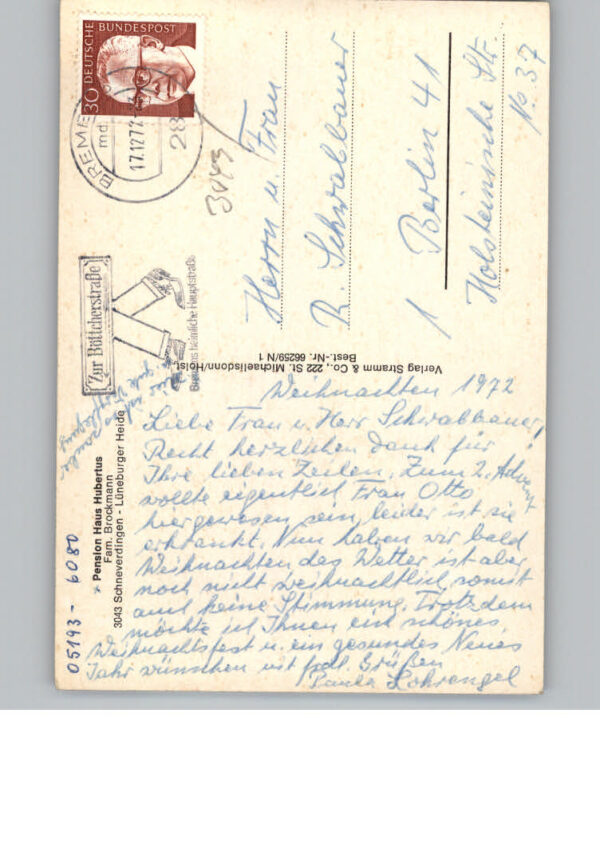 30 DEUTSCHE BUNDESPOST
BREME
17.12.72
28
Zur Böttcherstraße
Bremens heimliche Hauptstraße
Herrn u. Frau
R. Schwalbauer
1 Berlin 41
Holsteinische Str.
No. 37
Verlag Stramm & Co., 222 St. Michaelisdonn/Holst.
Best.-Nr. 66259/N 1
Pension Haus Hubertus
Fam. Brockmann
3043 Schneverdingen - Lüneburger Heide
05193 - 6080
Weihnachten 1972
Liebe Frau u. Herr Schwalbbauer!
Recht herzlichen dank für
Ihre lieben Zeilen. Zum 2. Advent
wollte eigentlich Frau Otto
hiergewesen sein, leider ist sie
erkrankt. Nun haben wir bald
Weihnachten das Wetter ist aber
noch nicht weihnachtlich, somit
auch keine Stimmung. Trotzdem
möchte ich Ihnen ein schönes
Weihnachtsfest u. ein gesundes Neues
Jahr wünschen mit frdl. Grüßen
Paula Lohrengel